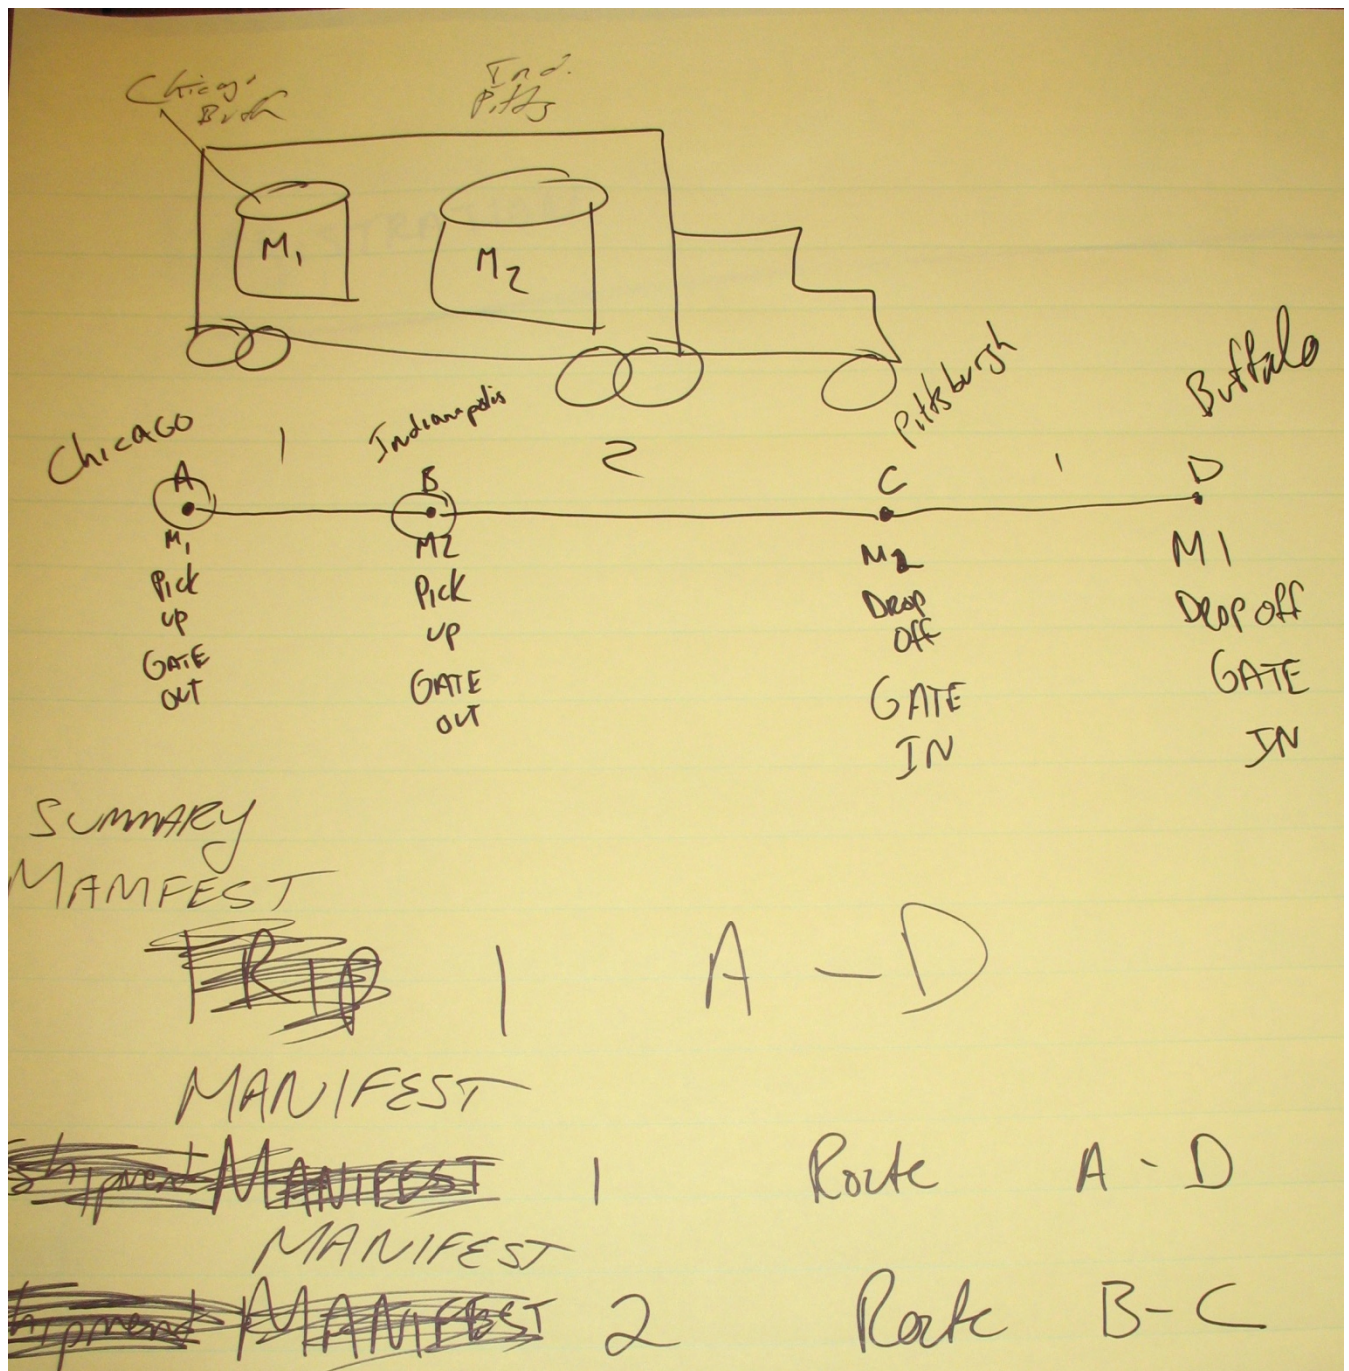 Chicago
Ind.
Pitts
M1
M2
Chicago
1
Indianapolis
2
Pittsburgh
1
Buffalo
A
B
C
D
M1
Pick
up
GATE
OUT
M2
Pick
up
GATE
OUT
M2
DROP
OFF
GATE
IN
M1
DROP OFF
GATE
IN
SUMMARY
MANIFEST
TRIP 1 A - D
MANIFEST
Shipment MANIFEST 1 Route A - D
MANIFEST
Shipment MANIFEST 2 Route B - C